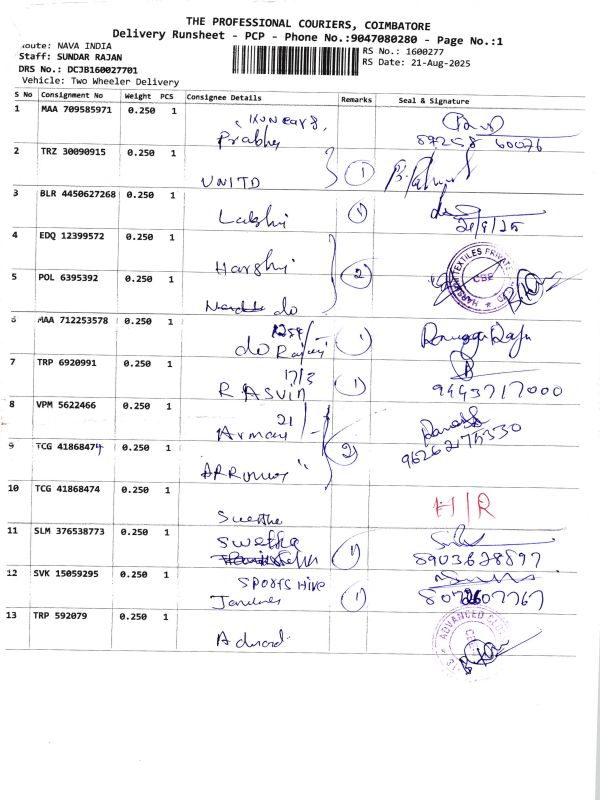 THE PROFESSIONAL COURIERS, COIMBATORE
Delivery Runsheet - PCP - Phone No.:9047080280 - Page No.:1
Route: NAVA INDIA
RS No.: 1600277
Staff: SUNDAR RAJAN
RS Date: 21-Aug-2025
DRS No.: DCJB160027701
Vehicle: Two Wheeler Delivery
S No Consignment No Weight PCS Consignee Details Remarks Seal & Signature
1 MAA 709585971 0.250 1 Prabhu
2 TRZ 30090915 0.250 1 UNITD 1
3 BLR 4450627268 0.250 1 Lakshi 1
4 EDQ 12399572 0.250 1 Harshi 2
5 POL 6395392 0.250 1 do
6 MAA 712253578 0.250 1 do 1
7 TRP 6920991 0.250 1 17/3 RASVIN 1 9443717000
8 VPM 5622466 0.250 1 21
9 TCG 41868474 0.250 1 2
10 TCG 41868474 0.250 1 Swetha H/R
11 SLM 376538773 0.250 1 Swetha 1 8903628897
12 SVK 15059295 0.250 1 SPORTS HIVE 1
13 TRP 592079 0.250 1